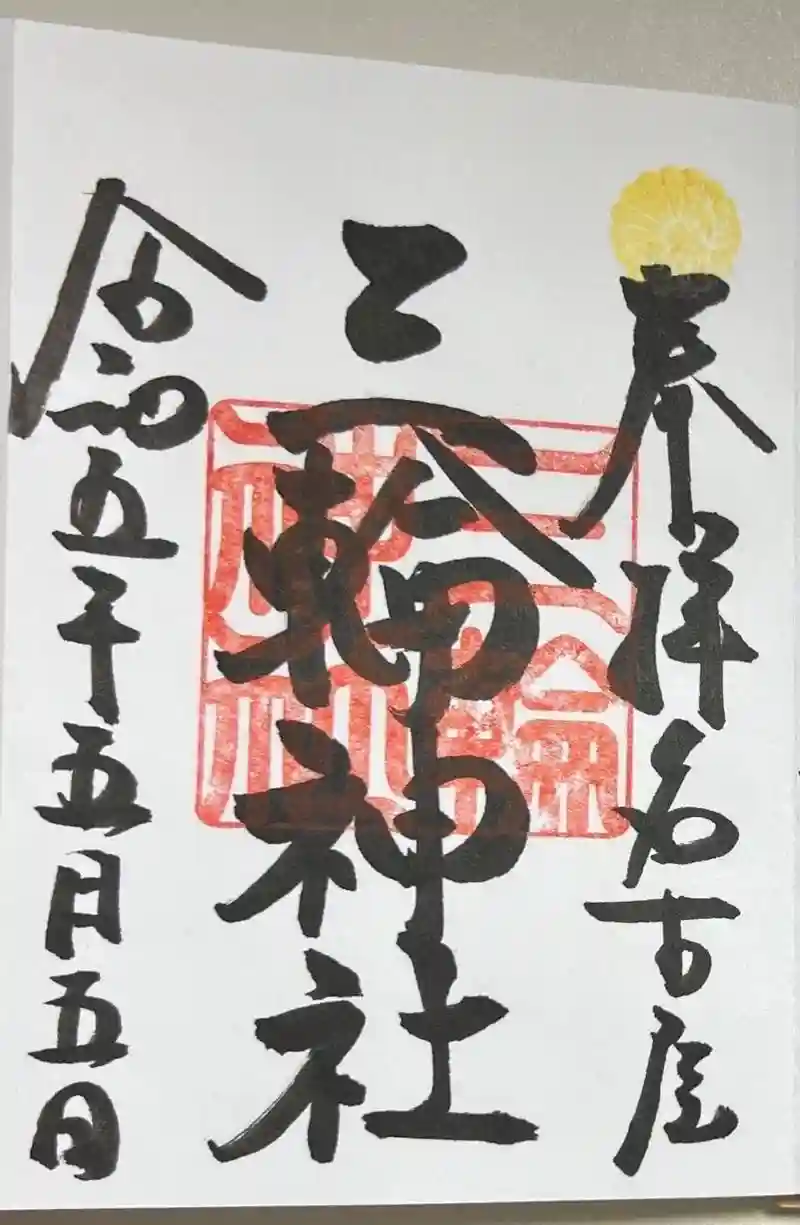 奉拝名古屋
三輪神社
三輪神社
令和五年五月五日